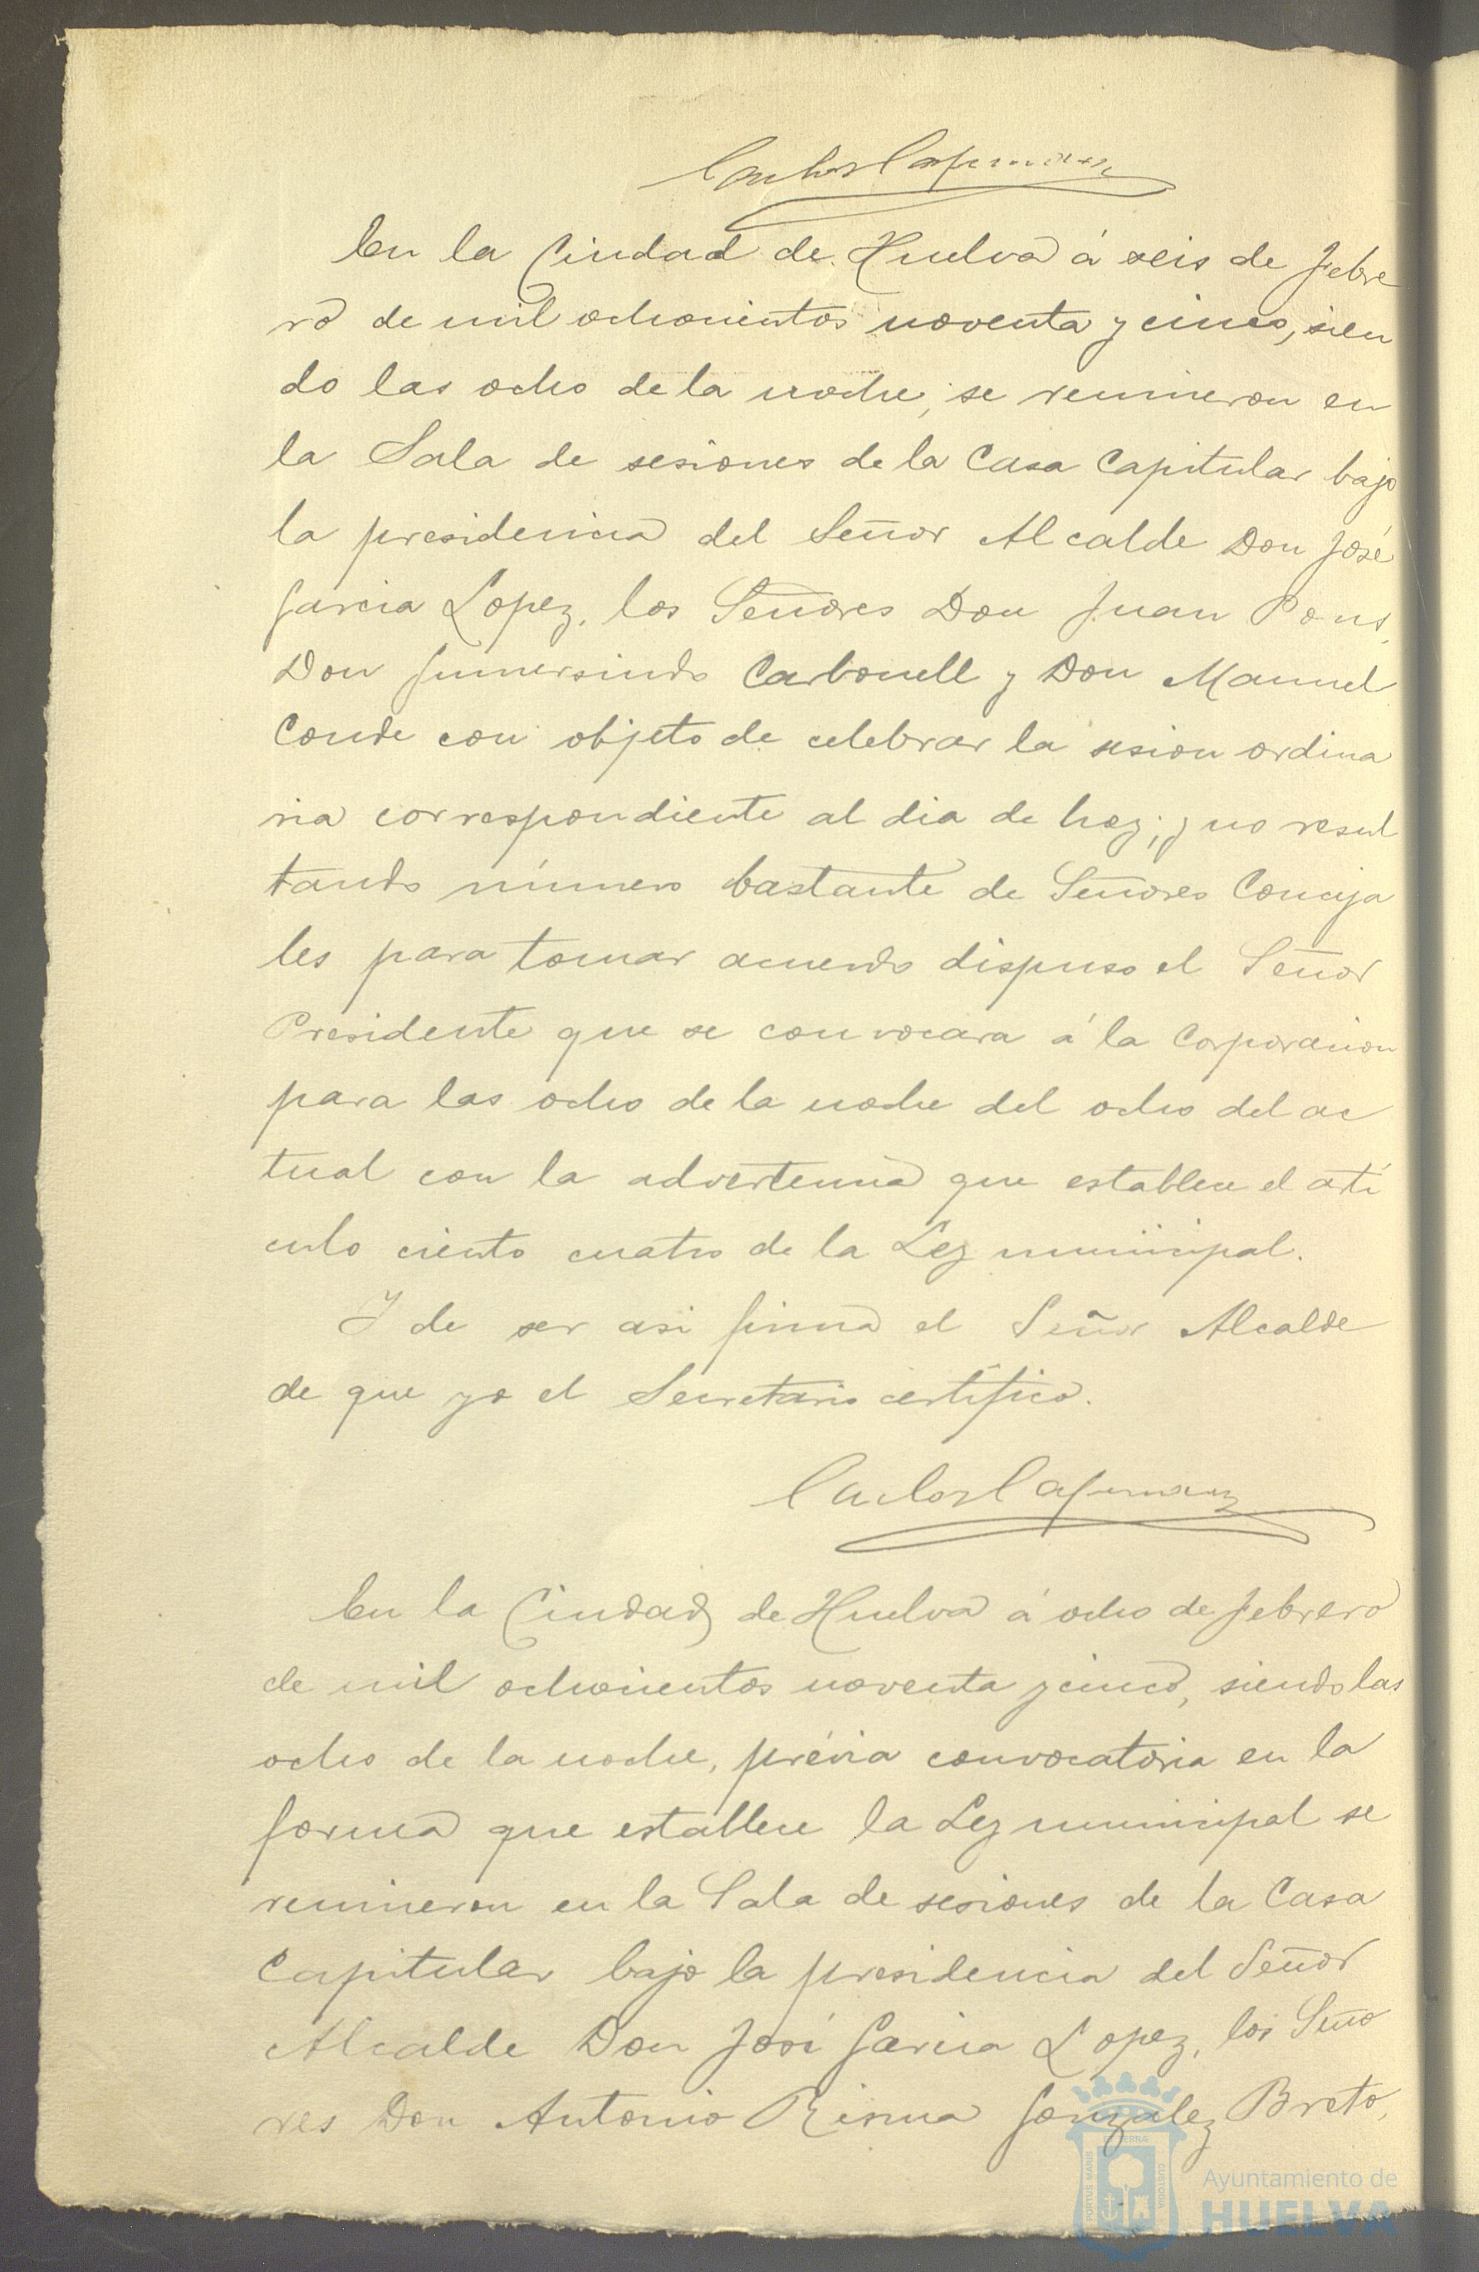 En la Ciudad de Huelva á seis de Febre
ro de mil ochocientos noventa y cinco, sien
do las ocho de la noche, se reunieron en
la Sala de sesiones de la Casa Capitular bajo
la presidencia del Señor Alcalde Don José
Garcia Lopez, los Señores Don Juan Pons,
Don Gumersindo Carbonell y Don Manuel
Conde con objeto de celebrar la sesion ordina
ria correspondiente al dia de hoy; y no resul
tando número bastante de Señores Conceja
les para tomar acuerdo dispuso el Señor
Presidente que se convocara á la Corporacion
para las ocho de la noche del ocho del ac
tual con la advertencia que establece el arti
culo ciento cuatro de la Ley municipal.
Y de ser asi firma el Señor Alcalde
de que yo el Secretario certifico.
En la Ciudad de Huelva á ocho de Febrero
de mil ochocientos noventa y cinco, siendo las
ocho de la noche, prévia convocatoria en la
forma que establece la Ley municipal se
reunieron en la Sala de sesiones de la Casa
Capitular bajo la presidencia del Señor
Alcalde Don José Garcia Lopez, los Seño
res Don Antonio González Breto,
Ayuntamiento de
HUELVA